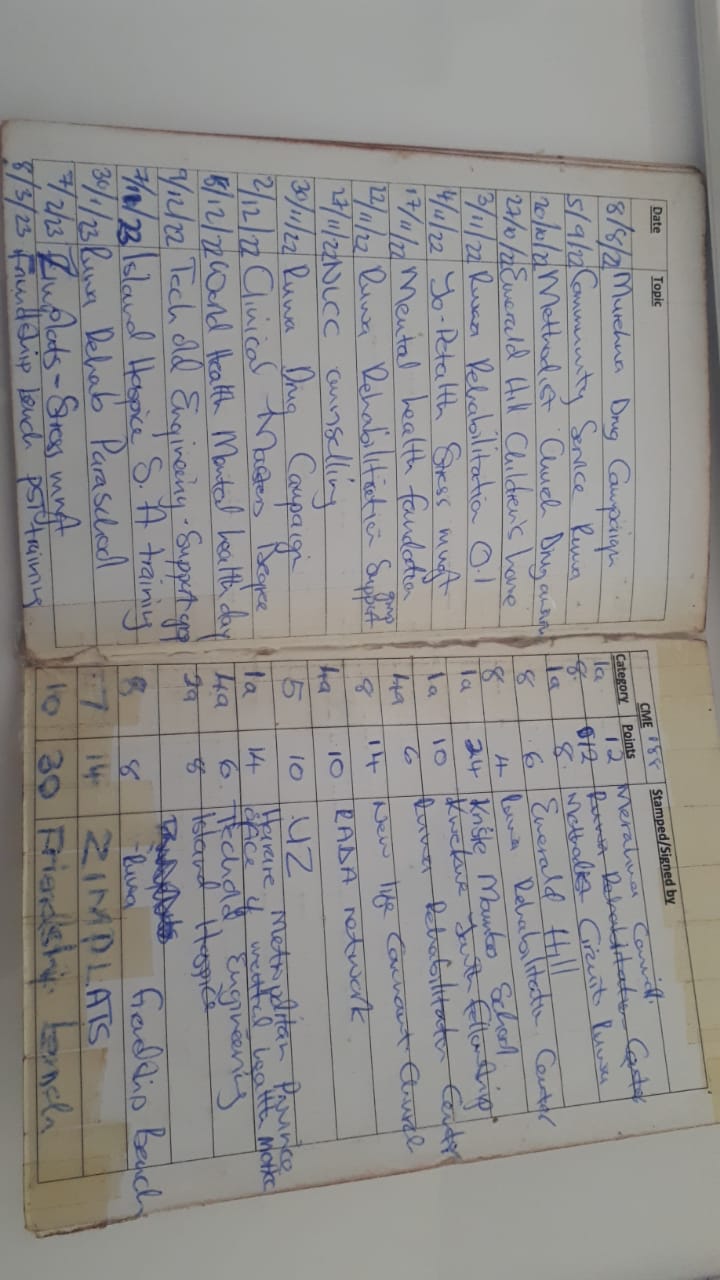 Date Topic
8/8/22 Murehwa Drug Campaign
5/9/22 Community Service Ruwa
20/10/22 Methodist Church Drug
27/10/22 Emerald Hill Children's home
3/11/22 Ruwa Rehabilitation O.1
4/11/22 Yo-Petalth Stress mngt
17/11/22 Mental health foundation
22/11/22 Ruwa Rehabilitation Support group
27/11/22 NLCC counselling
30/11/22 Ruwa Drug Campaign
2/12/22 Clinical Masters Degree
8/12/22 World Health Mental health day
9/12/22 Tech old Engineering - Support grp
7/1/23 Island Hospice S.A training
30/1/23 Ruwa Rehab Paraschool
7/2/23 Zimplats - Stress mngt
8/3/23 Friendship bench PST training
CME 188
Category Points Stamped/Signed by
1a 12
8 12 Ruwa Rehabilitation Center
1a 8 Methodist Circuit Ruwa
8 6 Emerald Hill
8 4 Ruwa Rehabilitation Center
1a 24 School
1a 10 Youth Fellowship
4a 6 Ruwa Rehabilitation Center
8 14 New life Covenant Church
4a 10 RADA network
5 10 UZ
1a 14 Harare Metropolitan Province office of mental health
4a 6 Techold Engineering
2a 8 Island Hospice
8 8 - Ruwa Friendship Bench
7 14 ZIMPLATS
10 30 Friendship Bench